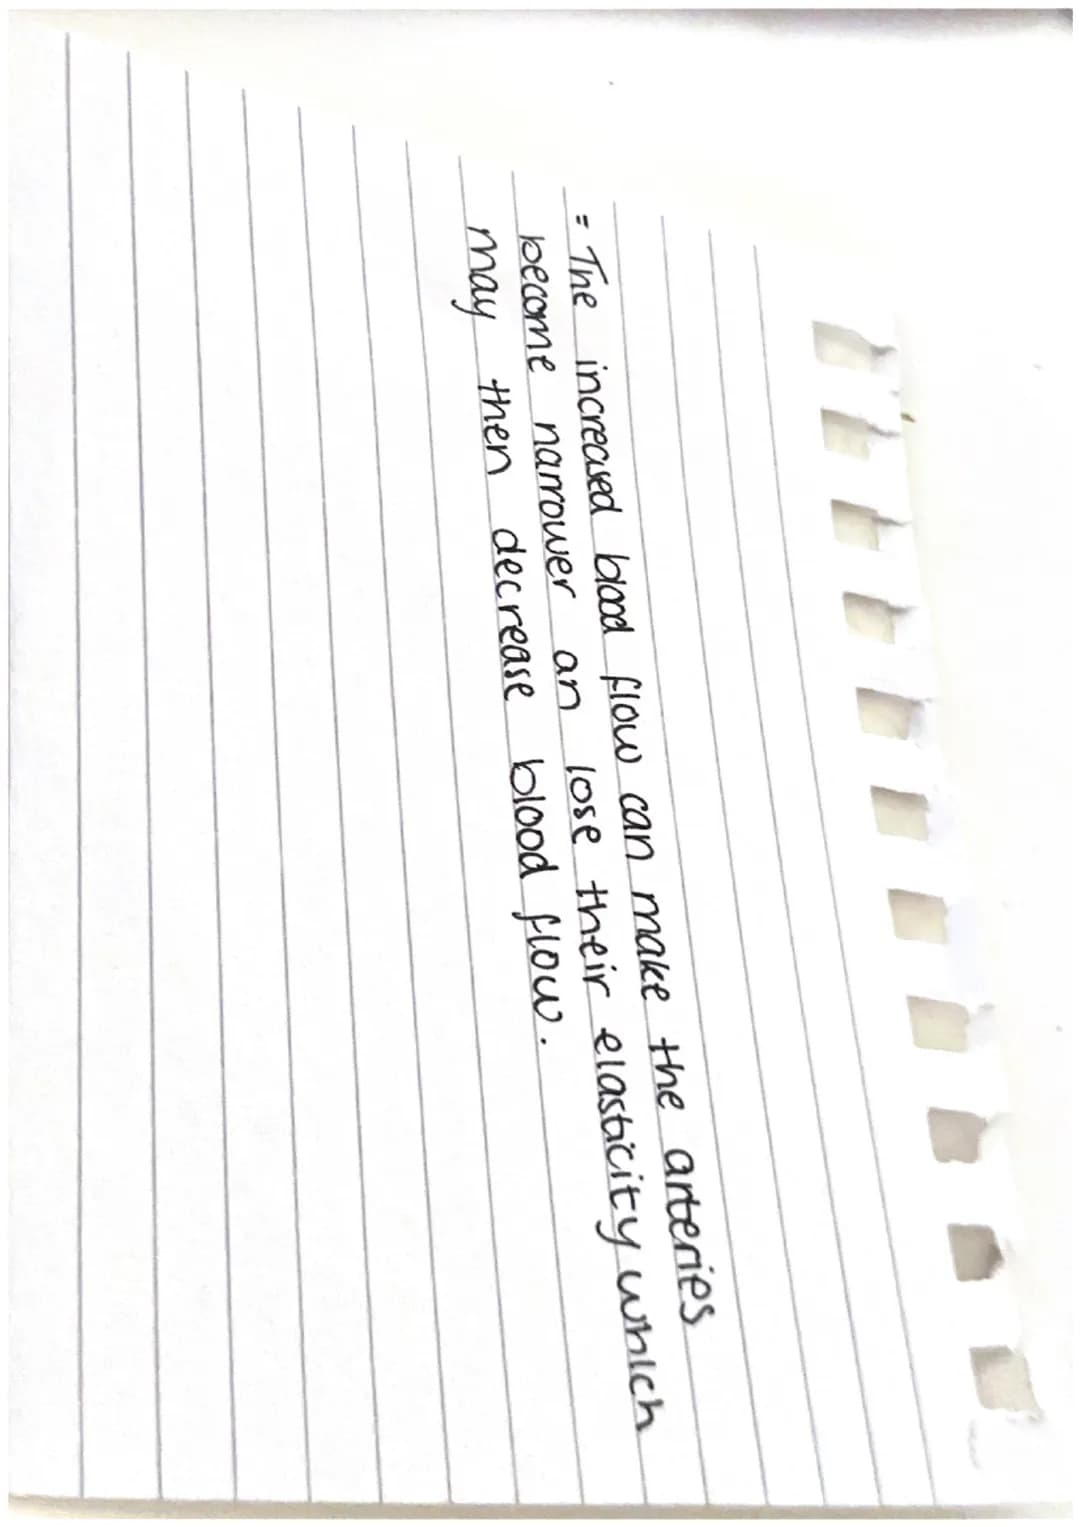 = The increased blood flow can make the arteries
become narrower an lose their elasticity which
may then decrease blood flow.